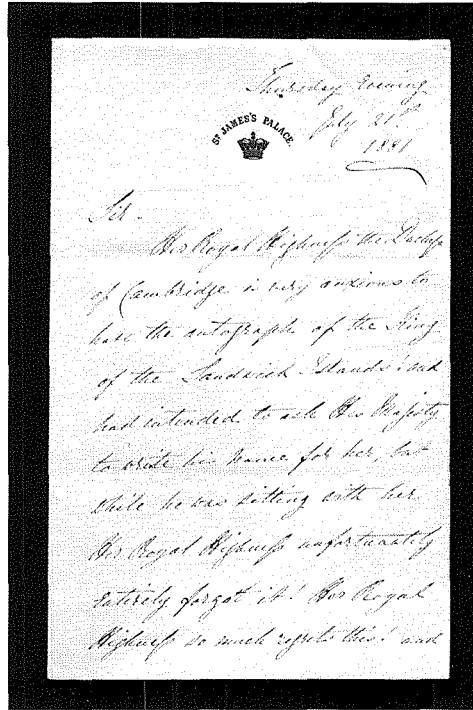 Thursday Evening
July 21st
1881
ST JAMES'S PALACE.
Sir -
Her Royal Highness the Duchess
of Cambridge is very anxious to
have the autograph of the King
of the Sandwich Islands! and
had intended to ask His Majesty
to write his name for her, but
while he was sitting with her
Her Royal Highness unfortunately
entirely forgot it! Her Royal
Highness so much regrets this! and